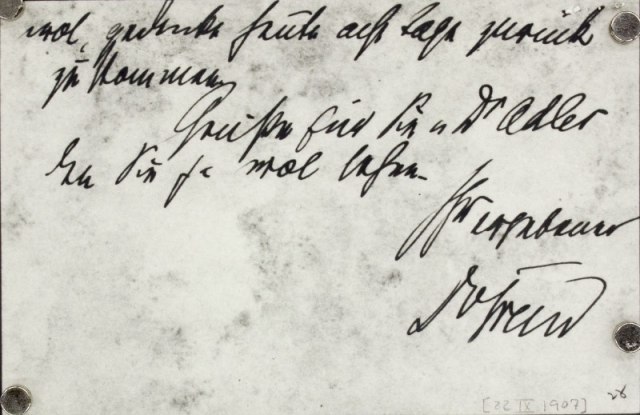 wol, gedenke heute acht Tage zurück
zu kommen
Grüße für Sie u Dr Adler
den Sie ja wol sehen.
Ihr ergebener
Dr Freud
[22 IX 1907]